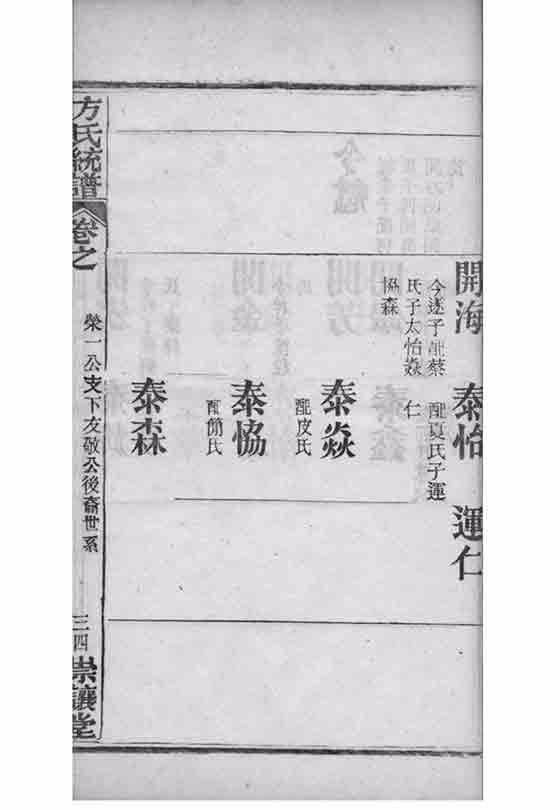 開海 泰怡 運仁
今遂子配蔡 配夏氏子運
氏子太怡焱 仁
協森
泰焱
配皮氏
泰協
配簡氏
泰森
方氏統譜 卷之
榮一公支下友敬公後裔世系
三四 崇讓堂